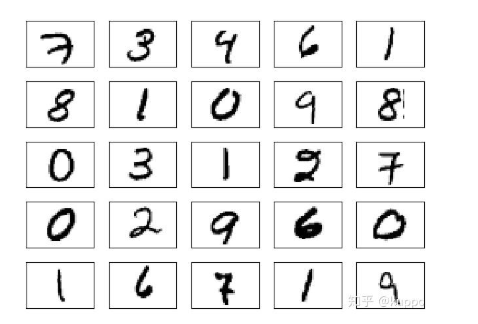 7 3 4 6 1
8 1 0 9 8
0 3 1 2 7
0 2 9 6 0
1 6 7 1 9
知乎